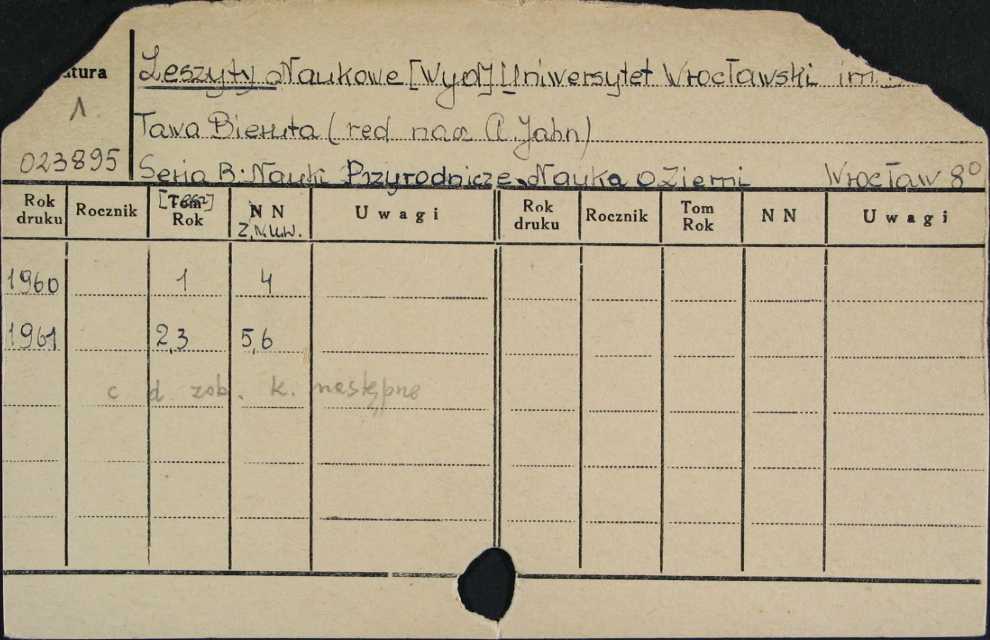 atura Zeszyty Naukowe [Wyd] Uniwersytet Wrocławski im.
1. Tawa Bieruta (red nacz A. Jahn)
023895 Seria B: Nauki Przyrodnicze, Nauka o Ziemi Wrocław 8°
Rok druku Rocznik Tom Rok NN Z.N.U.W. Uwagi Rok druku Rocznik Tom Rok NN Uwagi
1960 1 4
1961 2,3 5,6
c d zob. k. następne